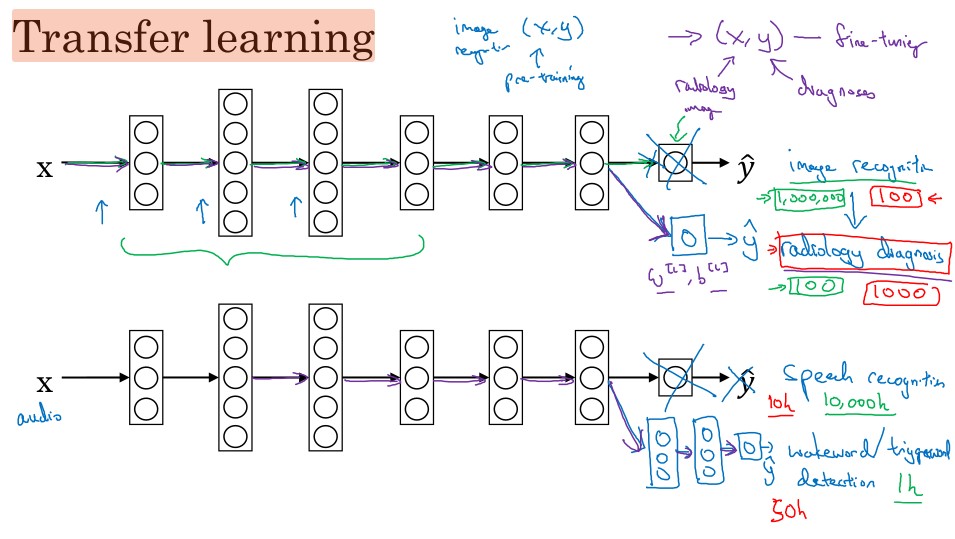 Transfer learning
image (x,y)
pre-training
→ (x,y) — fine-tuning
radiology
image
diagnoses
x
ŷ
image recognition
→ 1,000,000
100 ←
ŷ
radiology diagnosis
w[L], b[L]
→ 100
1000
x
ŷ
audio
Speech recognition
10h 10,000h
wakeword/triggerword
ŷ
detection 1h
50h